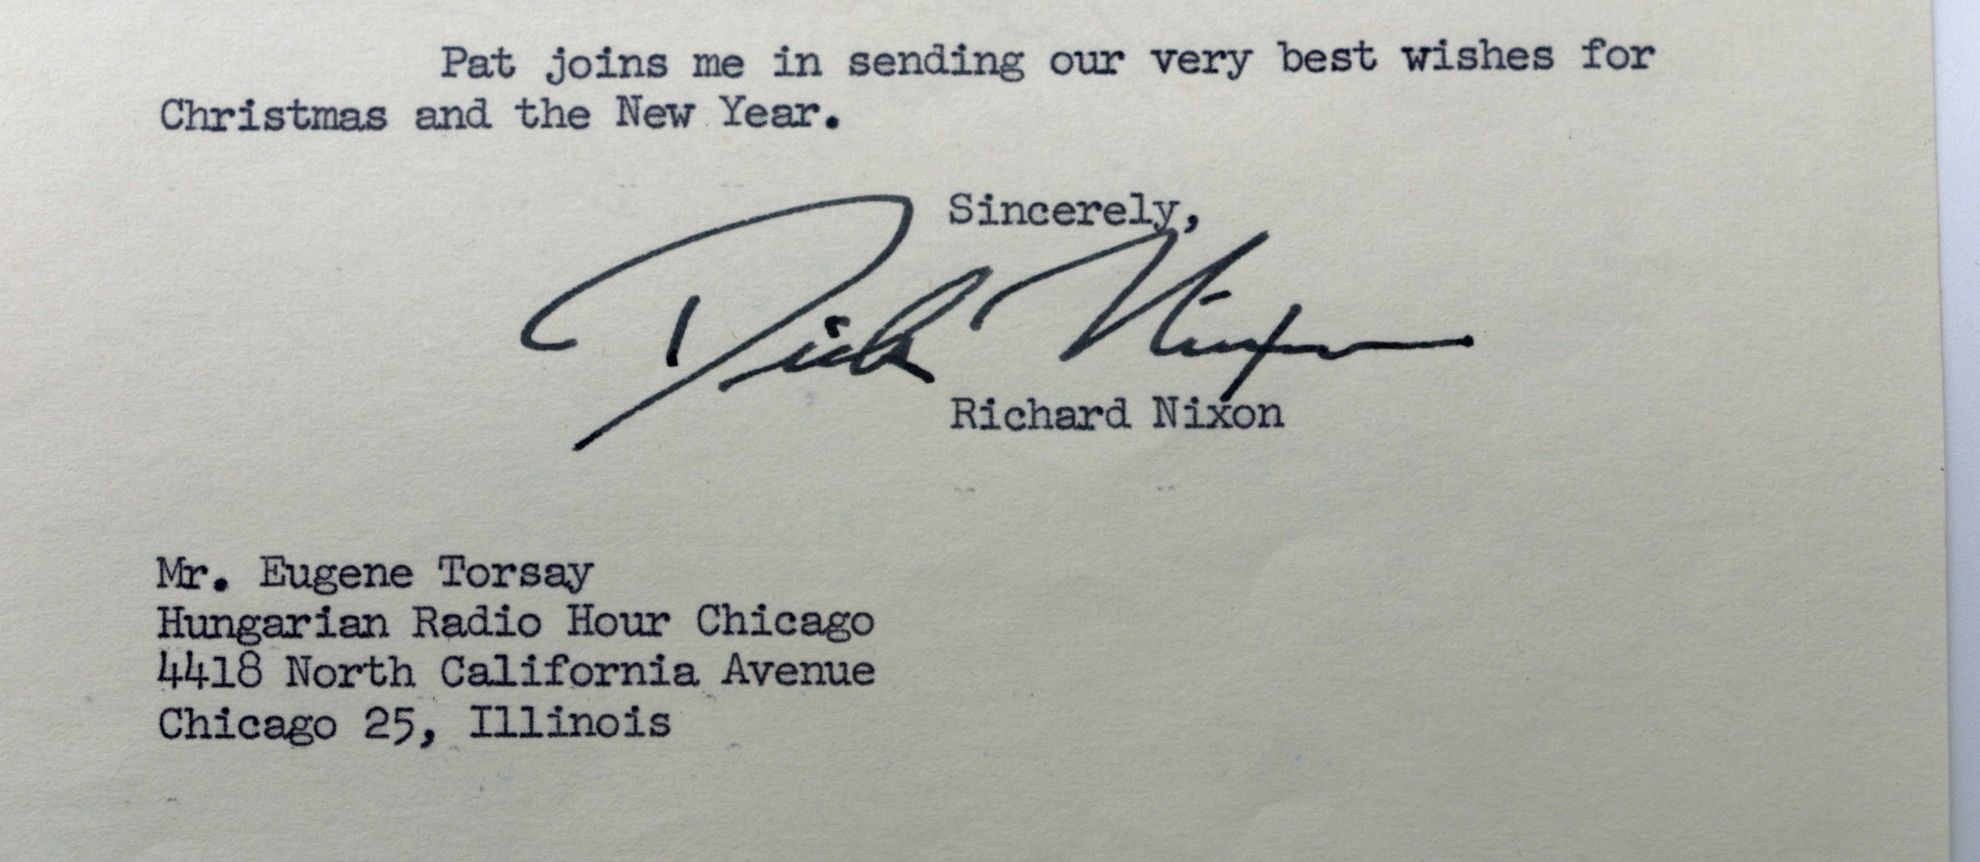 Pat joins me in sending our very best wishes for
Christmas and the New Year.
Sincerely,
Dick Nixon
Richard Nixon
Mr. Eugene Torsay
Hungarian Radio Hour Chicago
4418 North California Avenue
Chicago 25, Illinois